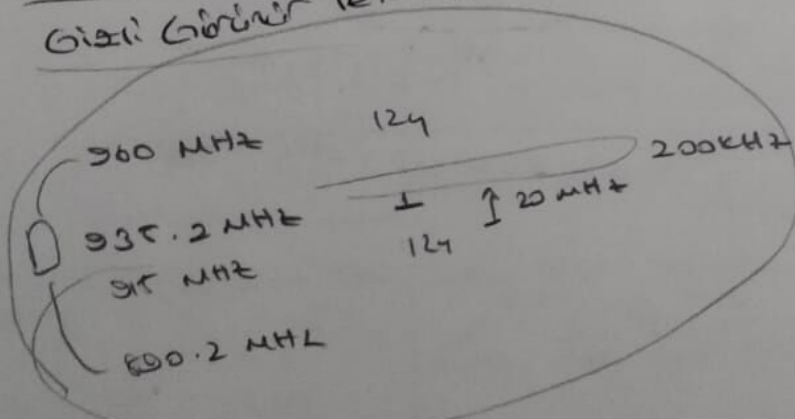 Gizli Görünür
960 MHz 124 200 kHz
935.2 MHz 1 20 MHz
915 MHz 124
890.2 MHz